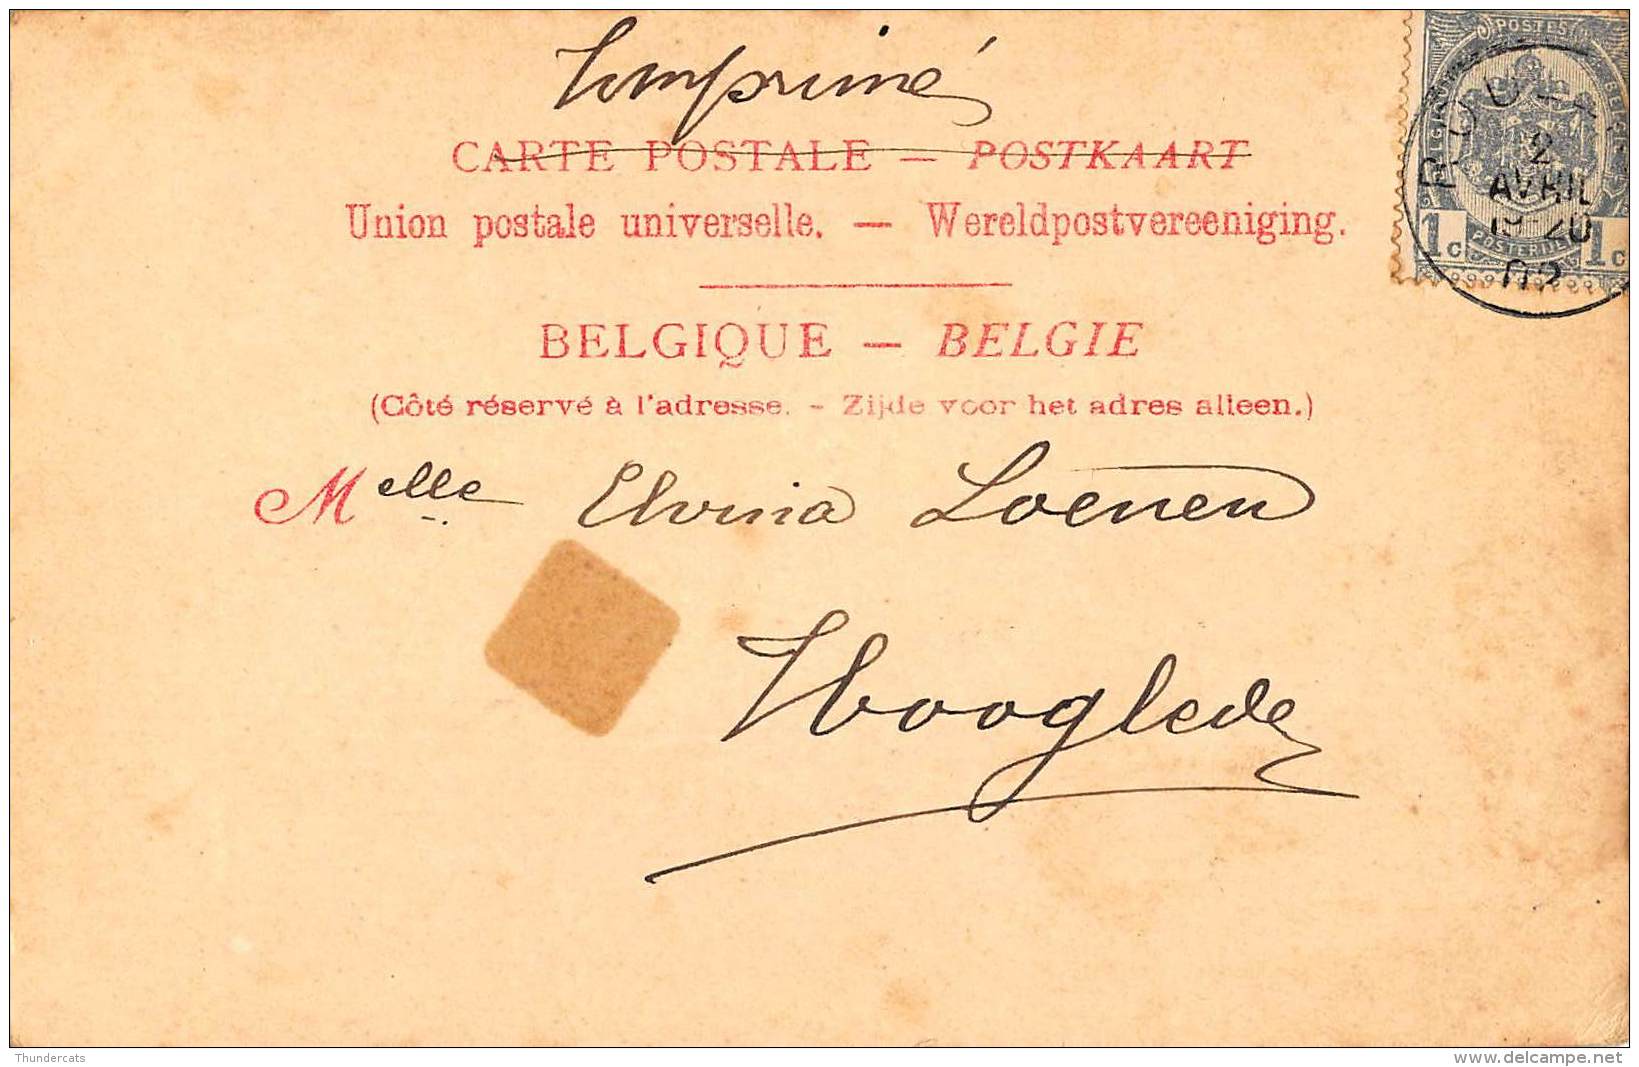 Imprimé
CARTE POSTALE — POSTKAART
Union postale universelle. — Wereldpostvereeniging.
BELGIQUE — BELGIE
(Côté réservé à l'adresse. - Zijde voor het adres alleen.)
Melle Elvina Loenen
Hooglede
POSTES
2
AVRIL
19 20
02
1c 1c
Thundercats
www.delcampe.net